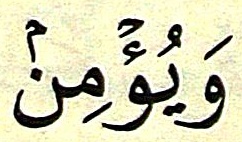 وَيُؤۡمِنۡ